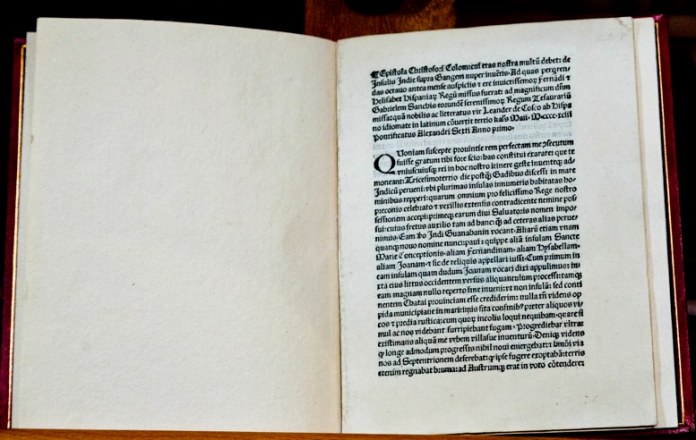 ¶ Epistola Christofori Colom: cui etas nostra multũ debet: de
Insulis Indie supra Gangem nuper inuẽtis. Ad quas perqren-
das octauo antea mense auspiciis ⁊ ere inuictissimoꝝ Fernãdi ⁊
Helisabet Hispaniaꝝ Regũ missus fuerat: ad magnificum dñm
Gabrielem Sanchis eorundẽ serenissimoꝝ Regum Tesaurariũ
missa: quã nobilis ac litteratus vir Leander de Cosco ab Hispa
no idiomate in latinum cõuertit tertio kalẽs Maii. M.cccc.xciii
Pontificatus Alexandri Sexti Anno primo.
QUoniam suscepte prouintie rem perfectam me ꝯsecutum
fuisse gratum tibi fore scio: has constitui exarare: que te
vniuscuiusꝙ rei in hoc nostro itinere geste inuenteꝙ ad-
moneant: Tricesimotertio die postꝙ̃ Gadibus discessi in mare
Indicũ perueni: vbi plurimas insulas innumeris habitatas ho-
minibus repperi: quarum omnium pro felicissimo Rege nostro
preconio celebrato ⁊ vexillis extensis contradicente nemine pos-
sessionem accepi: primeꝙ earum diui Saluatoris nomen impo-
sui: cuius fretus auxilio tam ad hanc ꝙ̃ ad ceteras alias perue-
nimus. Eam vo Indi Guanahanin vocant. Aliarũ etiam vnam
quanꝙ nouo nomine nuncupaui: quippe aliã insulam Sancte
Marie Conceptionis. aliam Fernandinam. aliam Hysabellam.
aliam Joanam. ⁊ sic de reliquis appellari iussi. Cum primum in
eam insulam quam dudum Joanam vocari dixi appulimus: iu-
xta eius littus occidentem versus aliquantulum processi: tamꝙ
eam magnam nullo reperto fine inueni: vt non insulã: sed conti
nentem Chatai prouinciam esse crediderim: nulla tñ videns op
pida municipiaue in maritimis sita confinib⁹ preter aliquos vi-
cos ⁊ predia rustica: cum quoꝝ incolis loqui nequibam. quare si
mul ac nos videbant surripiebant fugam. Progrediebar vltra:
existimans aliquã me vrbem villasue inuenturũ. Deniꝙ videns
ꝙ longe admodum progressis nihil noui emergebat: ⁊ hmõi via
nos ad Septentrionem deferebat: ꝙ ipse fugere exoptabã: terris
etenim regnabat bruma: ad Austrumꝙ erat in voto cõtendere: